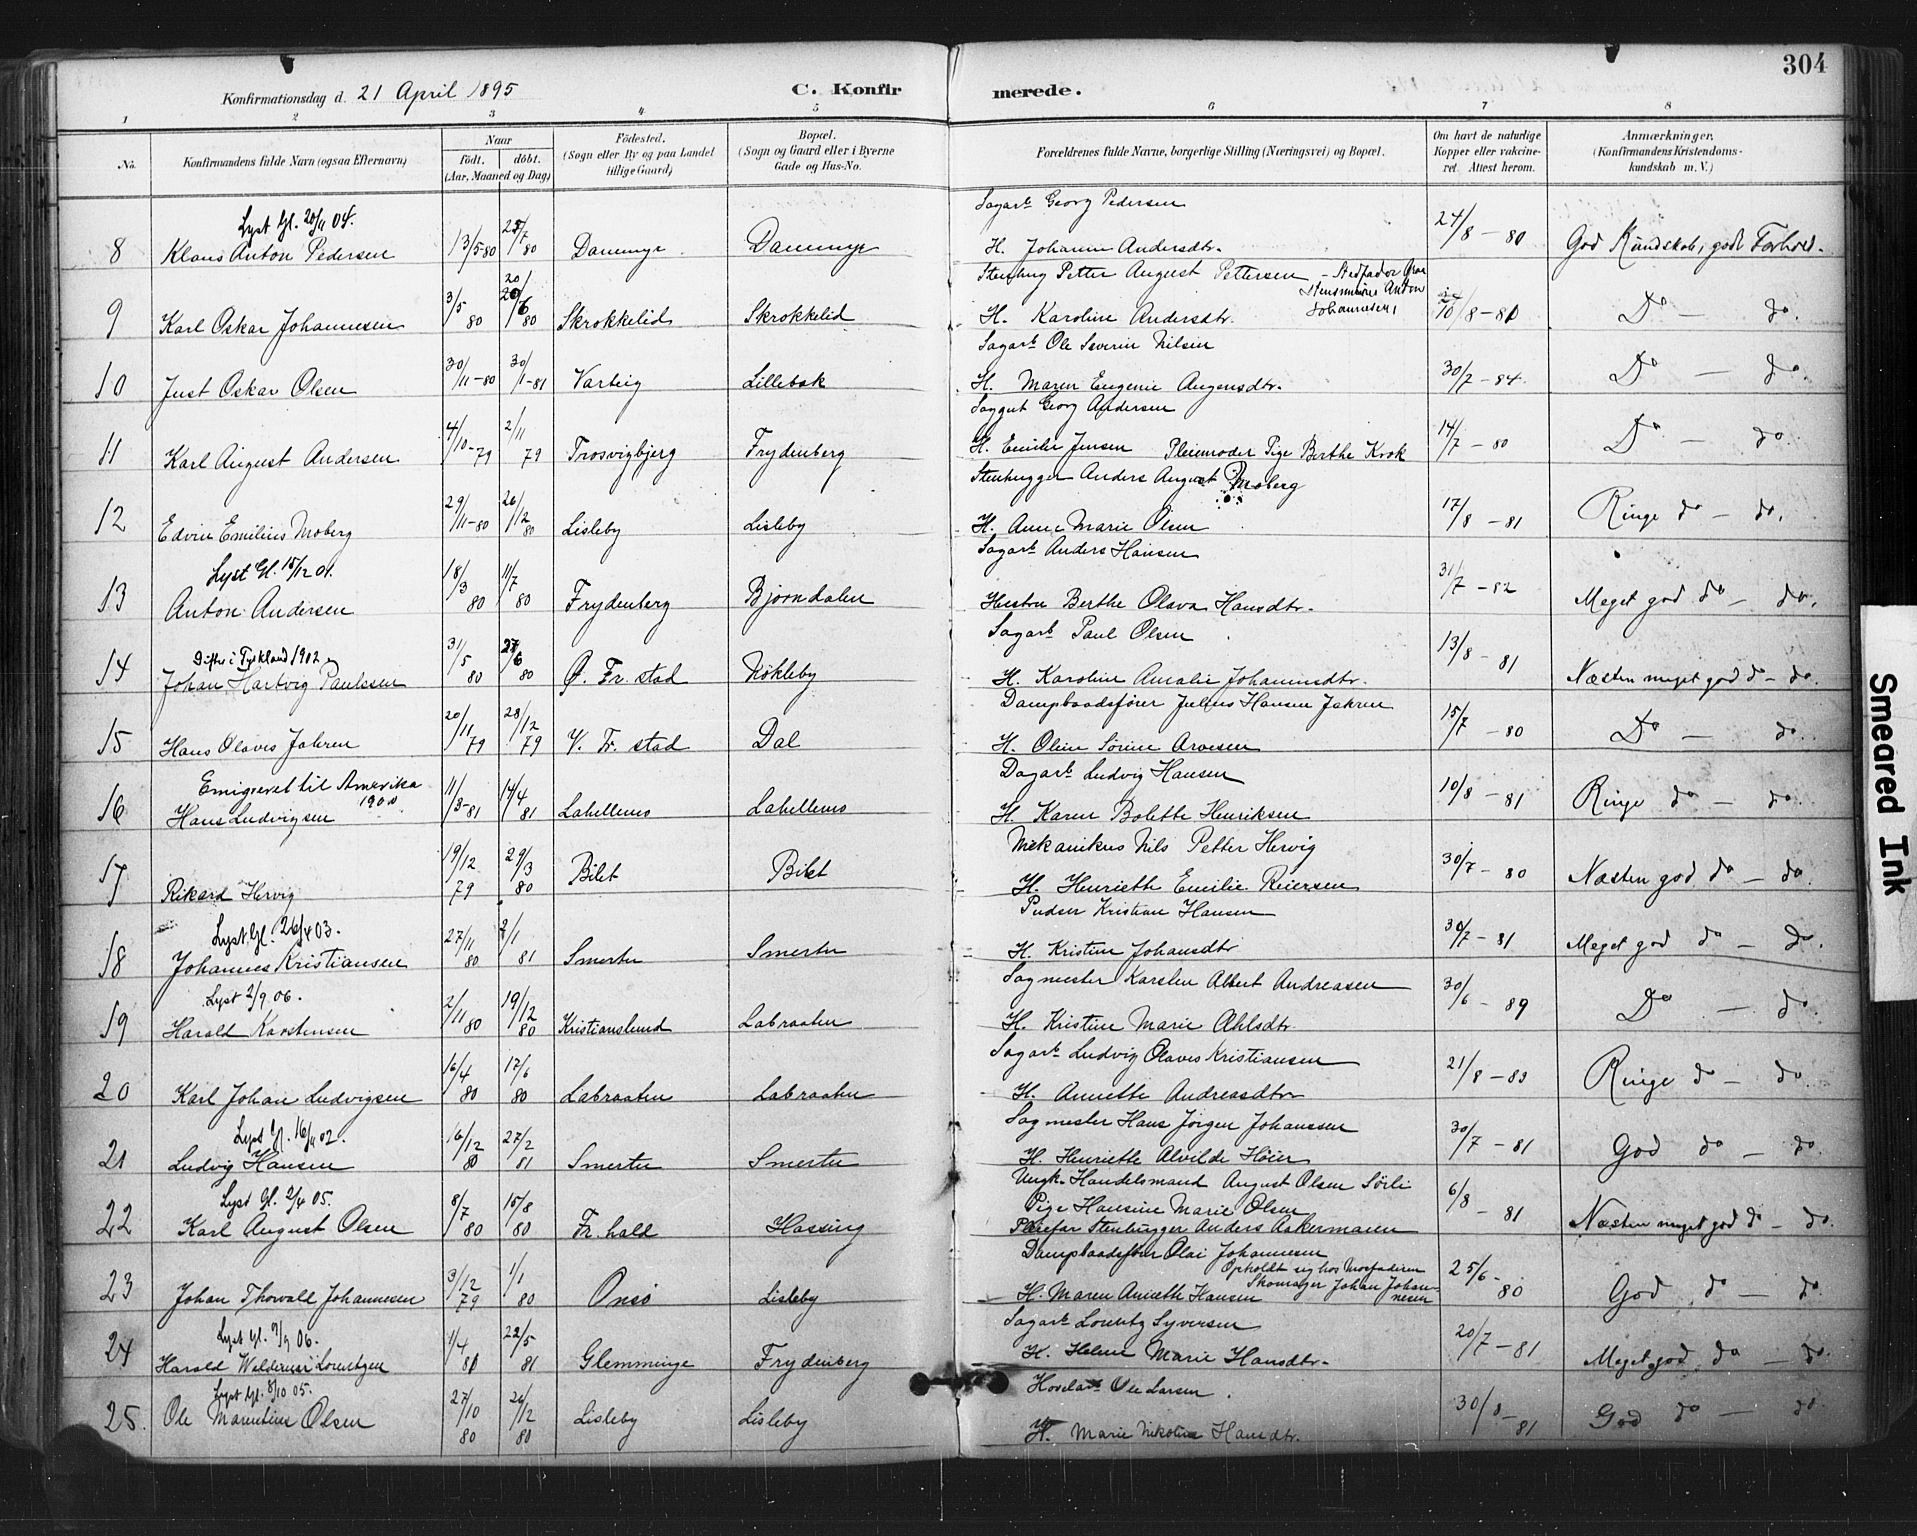 304
Konfirmationsdag d. 21 April 1895 C. Konfirmerede.
1 2 3 4 5 6 7 8
No. Konfirmandens fulde Navn (ogsaa Efternavn) Naar født. døbt. (Aar, Maaned og Dag) Fødested. (Sogn eller By og paa Landet tillige Gaard) Bopæl. (Sogn og Gaard eller i Byerne Gade og Hus-No. Forældrenes fulde Navne, borgerlige Stilling (Næringsvei) og Bopæl. Om havt de naturlige Kopper eller vakcineret. Attest herom. Anmærkninger. (Konfirmandens Kristendomskundskab m. V.)
Lyst Gl. 20/11 04. Sagarb. Georg Pedersen
8 Klaus Anton Pedersen 13/5 80 25/7 80 Dammyr Dammyr H. Johanne Andersdtr. 24/8 - 80 God Kundskab, godt Forhold.
Stenhug Petter August Pettersen - Stedfader Graastensminerer Anton Johannesen,
9 Karl Oskar Johannesen 3/5 80 20/6 80 Skrokkelid Skrokkelid H. Karoline Andersdtr. 10/8 - 81 Do - do.
Sagarb. Ole Severin Nilsen
10 Just Oskar Olsen 30/11 - 80 30/1 - 81 Varteig Lillebak H. Maren Eugenie Augensdtr. 30/7 - 84. Do - do.
Saggut Georg Andersen
11 Karl August Andersen 4/10 - 79 2/11 79 Trosvigbjerg Frydenberg H. Emilie Jensen Pleiemoder Pige Berthe Krok 14/7 - 80 Do - do.
Stenhugger Anders August Moberg
12 Edvin Emilius Moberg 29/11 - 80 26/12 80 Lisleby Lisleby H. Anne Marie Olsen 17/8 - 81 Ringe do - do.
Lyst Gl. 15/12 01. Sagarb. Anders Hansen
13 Anton Andersen 18/3 80 11/7 80 Frydenberg Bjørndalen Hustru Berthe Olava Hansdtr. 31/7 - 82 Meget god do - do.
Difter i Tyskland 1902 Sagarb. Paul Olsen
14 Johan Hartvig Paulssen 31/5 80 27/6 80 Ø. Fr.stad Nøkleby H. Karoline Amalie Johannesdtr. 13/8 - 81 Næsten meget god do - do.
Dampbaadsfører Julius Hansen Jahren
15 Hans Olaves Jahren 20/11 79 28/12 79 V. Fr. stad Dal H. Oline Sørine Arvesen 15/7 - 80 Do - do.
Emigreret til Amerika 1900 Dagarb. Ludvig Hansen
16 Hans Ludvigsen 11/3 - 81 14/4 81 Labellens Labellens H. Karen Bolette Henriksen 10/8 - 81 Ringe do - do.
Mekanikus Nils Petter Hervig
17 Rikard Hervig 19/12 79 29/3 80 Bilet Bilet H. Henriette Emilie Reiersen 30/7 - 80 Næsten god do - do.
Lyst Gl. 26/4 03. Pudser Kristian Hansen
18 Johannes Kristiansen 27/11 80 2/1 81 Smertu Smertu H. Kristine Johansdtr 30/7 - 81 Meget god do - do.
Lyst 2/9 06. Sagmester Karsten Albert Andreasen
19 Harald Karstensen 2/11 80 19/12 80 Kristianslund Labraaten H. Kristine Marie Ahlsdtr. 30/6 - 89 Do - do.
Sagarb. Ludvig Olaves Kristiansen
20 Karl Johan Ludvigsen 16/4 80 17/6 80 Labraaten Labraaten H. Annette Andreasdtr 21/8 - 83 Ringe do - do.
Lyst Gl. 16/4 02. Sagmester Hans Jørgen Johanssen
21 Ludvig Hansen 16/12 80 27/2 81 Smertu Smertu H. Henriette Alvilde Høier 30/7 - 81 God do - do.
Lyst Gl. 2/4 05. Ungk. Handelsmand August Olsen Sørli
Pige Hansine Marie Olsen
22 Karl August Olsen 8/7 80 15/8 80 Fr. hald Hassing Pleiefar Stenhugger Anders Aakermann 6/8 - 81 Næsten meget god do - do.
Dampbaadsfører Olai Johannesen
Opholdt sig hos Morfaderen Skomager Johan Johannesen
23 Johan Thorvald Johannesen 3/12 79 1/1 80 Onsø Lisleby H. Maren Annette Hansen 25/6 - 80 God do - do.
Lyst Gl. 9/9 06. Sagarb. Lorentz Syversen
24 Harald Waldemar Lorentzen 1/4 81 22/5 81 Glemminge Frydenberg H. Helene Marie Hansdtr. 20/7 - 81 Meget god do - do.
Lyst Gl. 8/10 05. Hovelarb. Ole Larsen
25. Ole Marentius Olsen 27/10 80 26/12 80 Lisleby Lisleby H. Marie Nikoline Hansdtr. 30/8 - 81 God do - do.
Smeared Ink